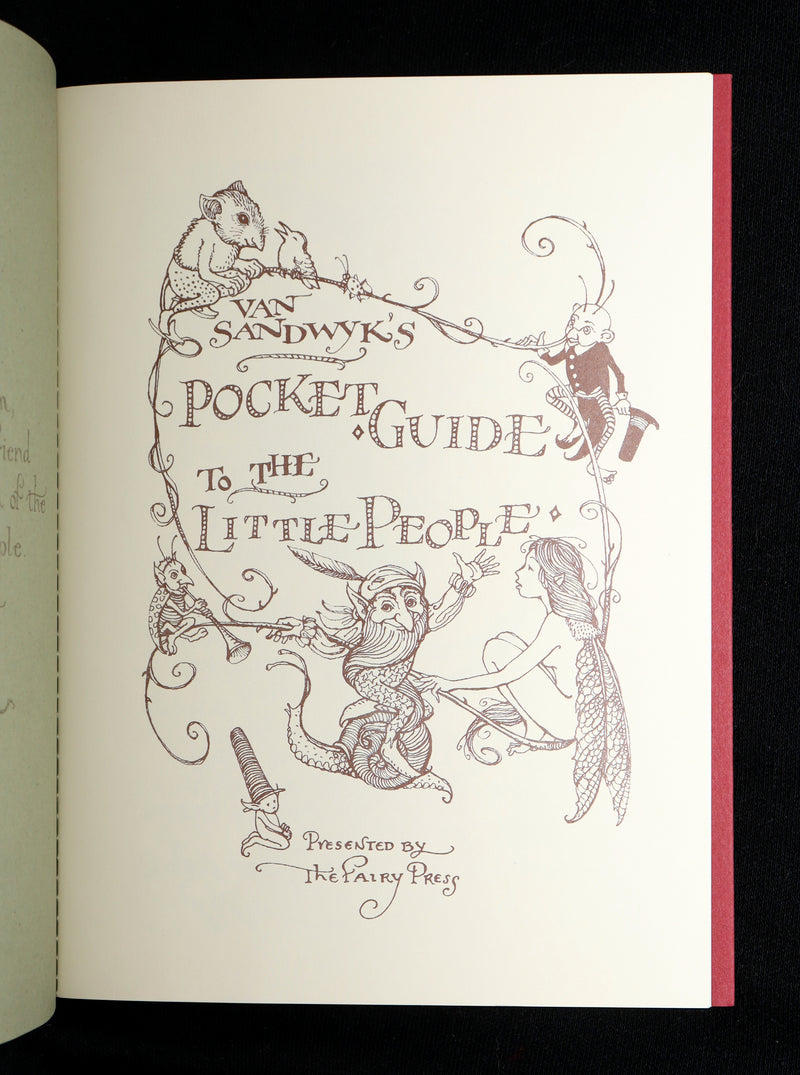 friend
of the
VAN
SANDWYK'S
POCKET
GUIDE
TO THE
LITTLE PEOPLE
PRESENTED BY
The FAIRY PRESS